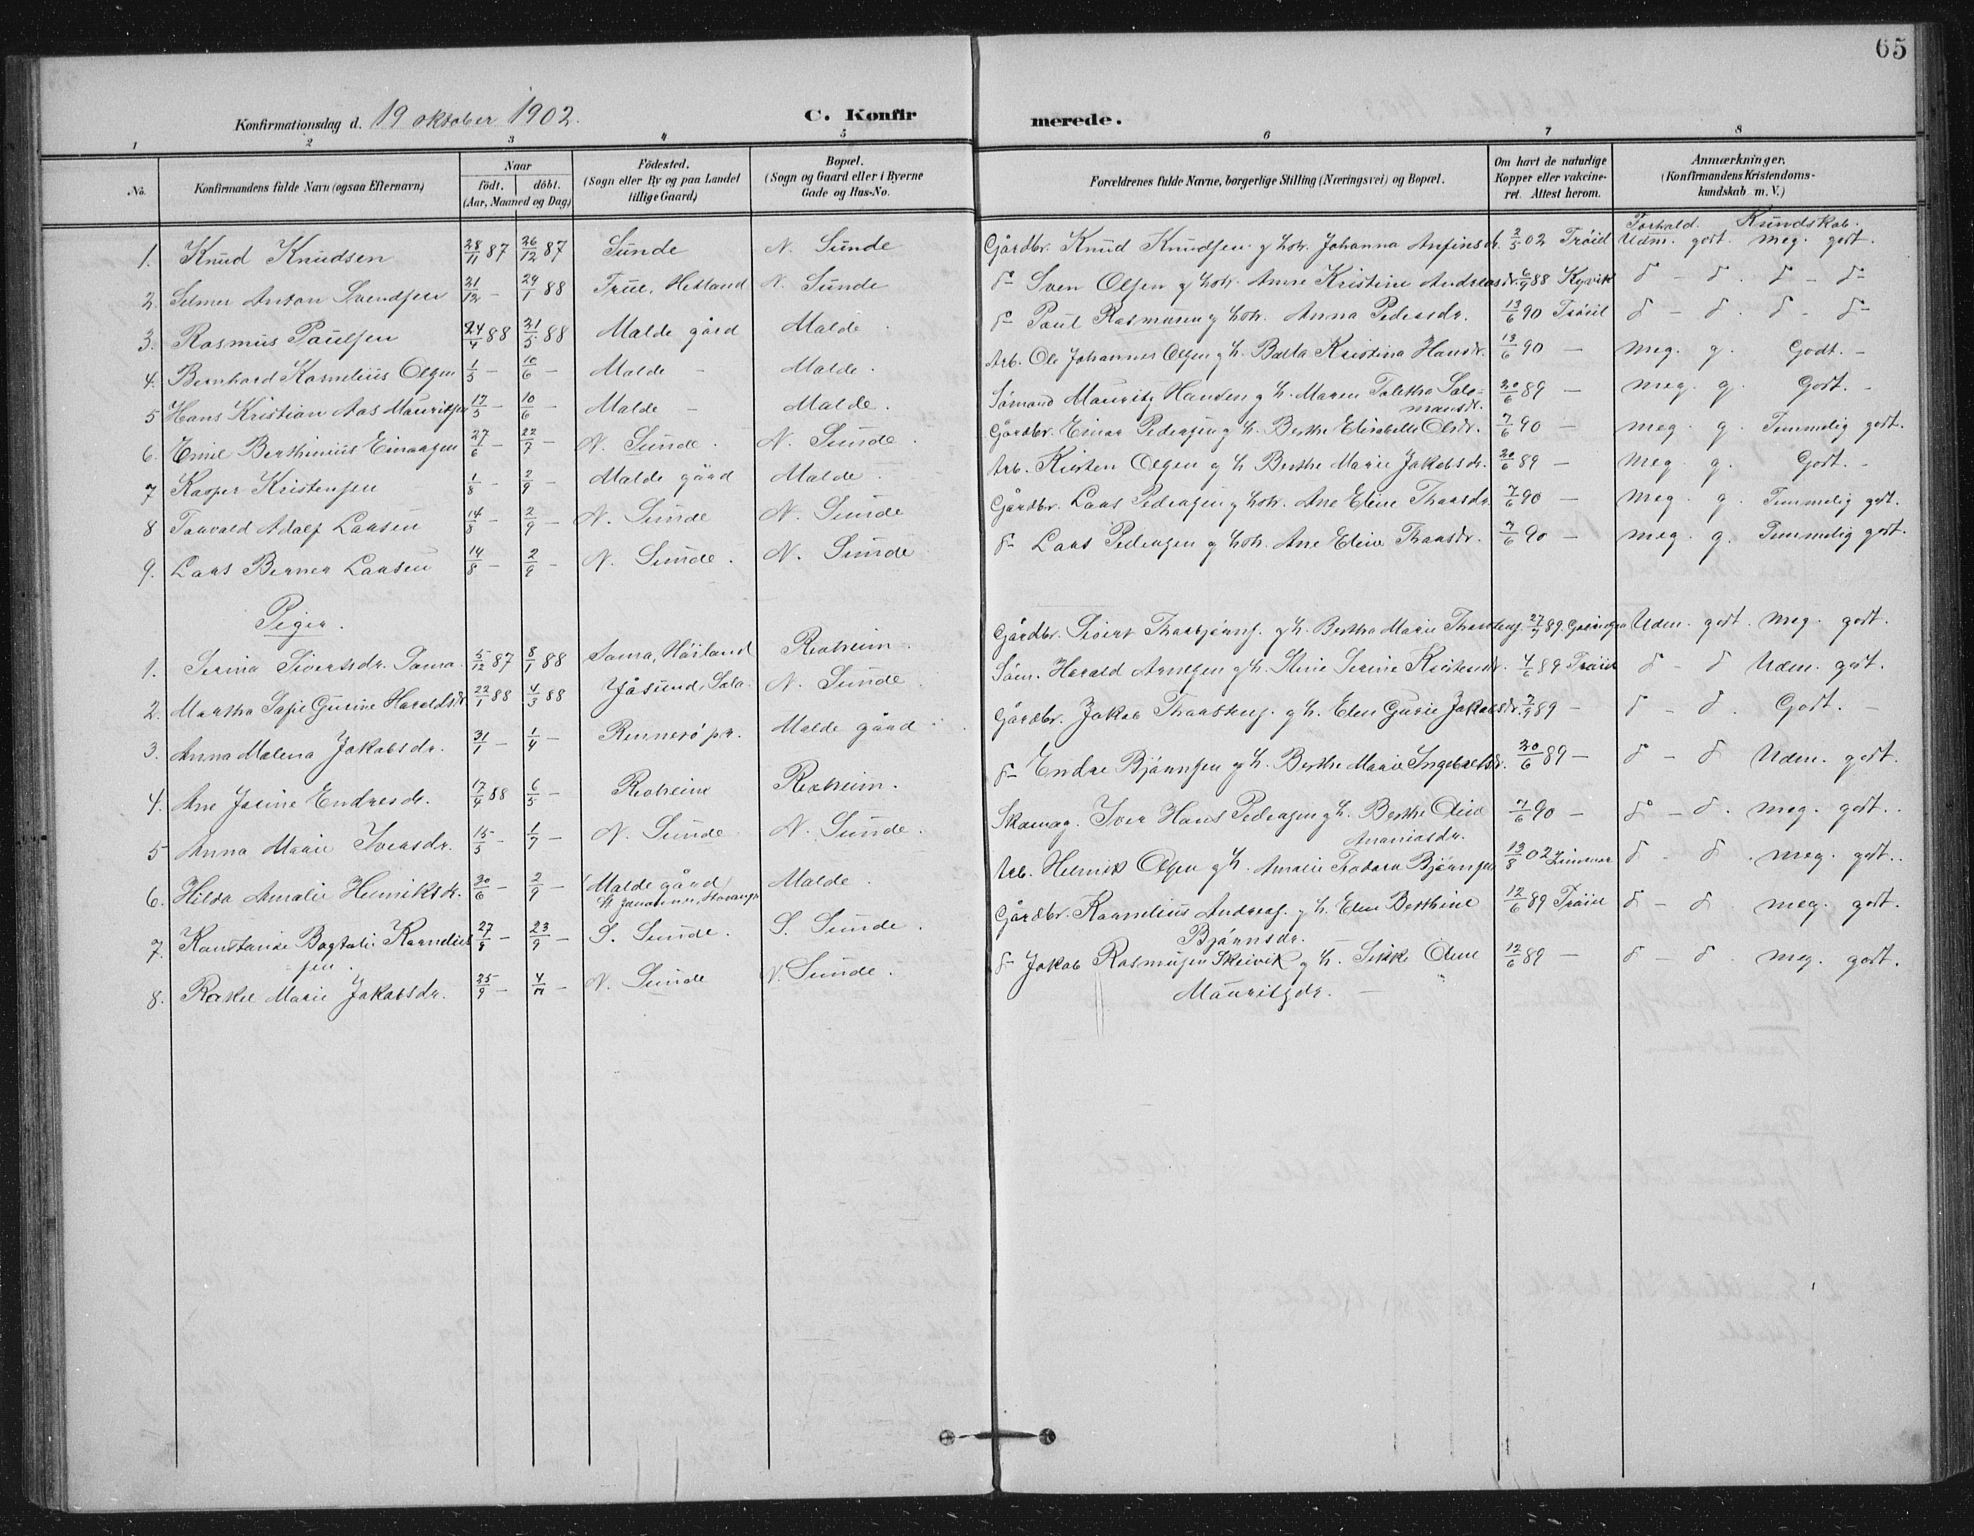 65
Konfirmationsdag d. 19 oktober 1902. C. Konfir merede.
1 2 3 4 5 6 7 8
No. Konfirmandens fulde Navn (ogsaa Efternavn) Naar født. døbt. (Aar, Maaned og Dag) Fødested. (Sogn eller By og paa Landet tillige Gaard) Bopæl. (Sogn og Gaard eller i Byerne Gade og Hus-No. Forældrenes fulde Navne, borgerlige Stilling (Næringsvei) og Bopæl. Om havt de naturlige Kopper eller vakcineret. Attest herom. Anmærkninger. (Konfirmandens Kristendomskundskab m. V.)
Forhold. Kundskab.
1. Knud Knudsen 28/11 87 26/12 87 Sunde N. Sunde Gårdbr. Knud Knudsen g hstr. Johanna Anfinsd. 2/5 02 Trøid Udm. godt. meg. godt.
2. Selmer Anton Svendsen 21/12 – 29/1 88 Hetland N. Sunde d– Sven Olsen g hstr. Anne Kristine Andreasdr. 6/9 88 Kyvik d – d. d – d–
3. Rasmus Paulsen 24/4 88 21/5 88 Malde gård Malde. d– Paul Rasmussen g hstr. Anna Pedersdr. 13/6 90 Trøid d – d. d – d–
4. Bernhard Kornelius Olsen 1/5 – 10/6 – Malde – Malde. Arb. Ole Johannes Olsen g h. Berta Kristina Hansdr. 13/6 90 – meg. g. Godt. –
5 Hans Kristian Aas Mauritsen 17/5 – 10/6 – Malde – Malde. Sømand Mauritz Hansen g h. Maren Taletha Salomonsdr. 20/6 89 – meg. g. Godt. –
6. Emil Berthinius Einarsen 27/6 – 22/7 – N. Sunde. N. Sunde. Gårdbr. Einar Pedersen g h. Berthe Elisabeth Olsdr. 7/6 90 – meg. g. Temmelig godt.
7 Kasper Kristensen 1/8 – 2/9 – Malde gård Malde. Arb. Kristen Olsen g h. Berthe Marie Jakobsdr. 20/6 89 – meg g. Godt. –
8 Taarvald Adolf Larsen 14/8 – 2/9 – N. Sunde N. Sunde Gårdbr. Lars Pedersen g hstr. Ane Eline Thorsdr. 7/6 90 – meg. g. Temmelig godt.
9. Lars Berner Larsen 14/8 – 2/9 – N. Sunde. N. Sunde d– Lars Pedersen g hstr. Ane Eline Thorsdr. 7/6 90 – meg. g. Temmelig godt.
Piger.
1. Serina Siversdr. Soma. 5/12 87 8/1 88 Soma, Høiland Revheim. Gårdbr. Sivert Thorbjørns. g h. Bertha Marie 27/7 89 Udm. godt. meg. godt.
2. Martha Sofie Gurine Haraldsdr 22/1 88 4/3 88 Jåsund, Sola. N. Sunde. Søm. Harald Arnesen g h. Stine Serine Kristensdr. 4/6 89 Trøid d – d Udm. godt.
3. Anna Malena Jakobsdr. 31/1 – 1/4 – Rennesø pr. Malde gård. Gårdbr. Jakob g h. Elen Gurie Jakobsdr. 2/9 89 – d – d. Godt. –
4. Ane Jorine Endresdr. 17/4 88 6/5 – Revheim Revheim. d– Endre Bjørnsen g h. Berthe Marie Ingebretsdr. 20/6 89 – d – d Udm. godt.
5 Anna Marie Iversdr. 15/5 – 1/7 – N. Sunde. N. Sunde. Skomag. Iver Hans Pedersen g h. Berthe Olid Ananiasdr. 7/6 90 – d – d. meg. godt.
6. Hilda Amalie Henriksdr. 30/6 – 2/9 – (Malde gård) St Johannes, Stavanger Malde. Arb. Henrik Olsen g h. Amalie Todora Bjørnsen 13/8 02 d – d. meg. godt.
7. Konstanse Bogtalie Korneliussen. 27/8 – 23/9 – S. Sunde. S. Sunde. Gårdbr. Kornelius Andreas. g h. Elen Berthine Bjørnsdr. 12/6 89 Trøid d – d. meg. godt.
8. Rakel Marie Jakobsdr. 25/9 – 4/11 – N. Sunde N. Sunde. d– Jakob Rasmussen Skeivik g h. Sikke Oline Mauritzdr. – 12/6 89 – d – d. meg. godt.